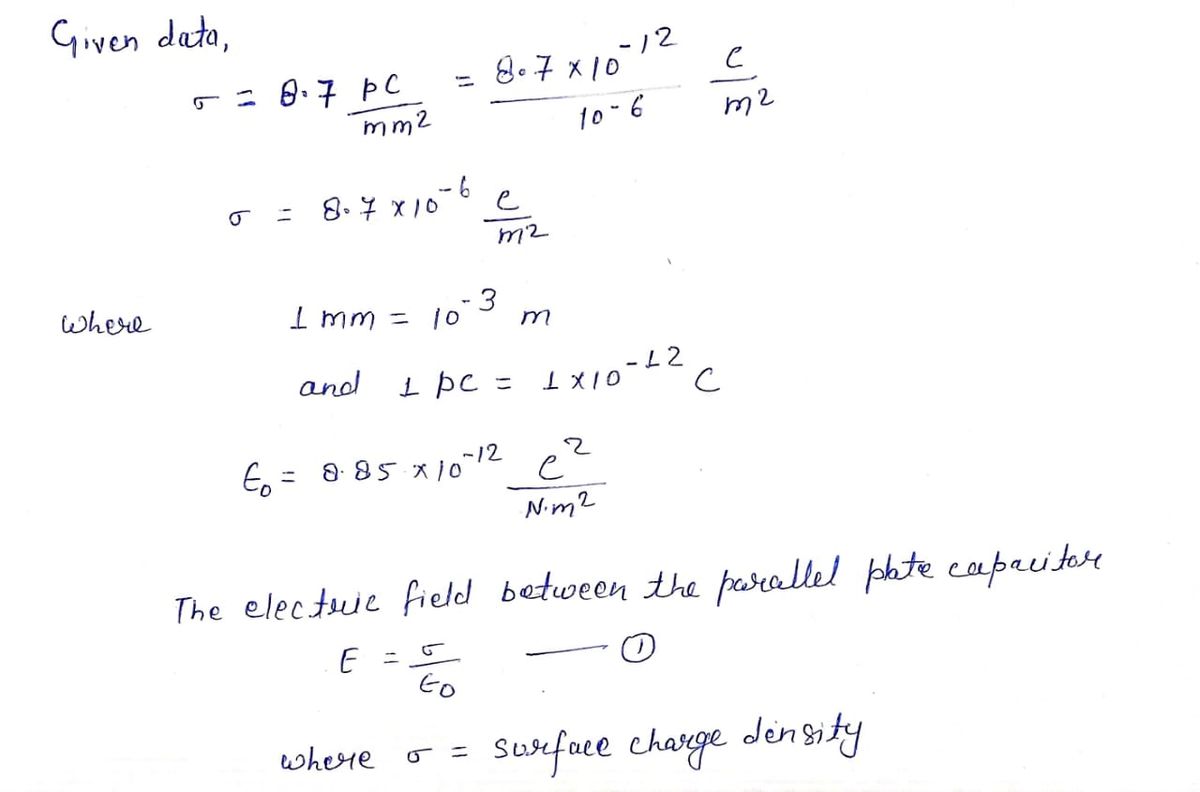 Given data,
σ = 8.7 pC/mm² = 8.7 × 10⁻¹²/10⁻⁶ C/m²
σ = 8.7 × 10⁻⁶ C/m²
where 1 mm = 10⁻³ m
and 1 pC = 1 × 10⁻¹² C
ϵ₀ = 8.85 × 10⁻¹² C²/N.m²
The electric field between the parallel plate capacitor
E = σ/ϵ₀ —— ①
where σ = surface charge density